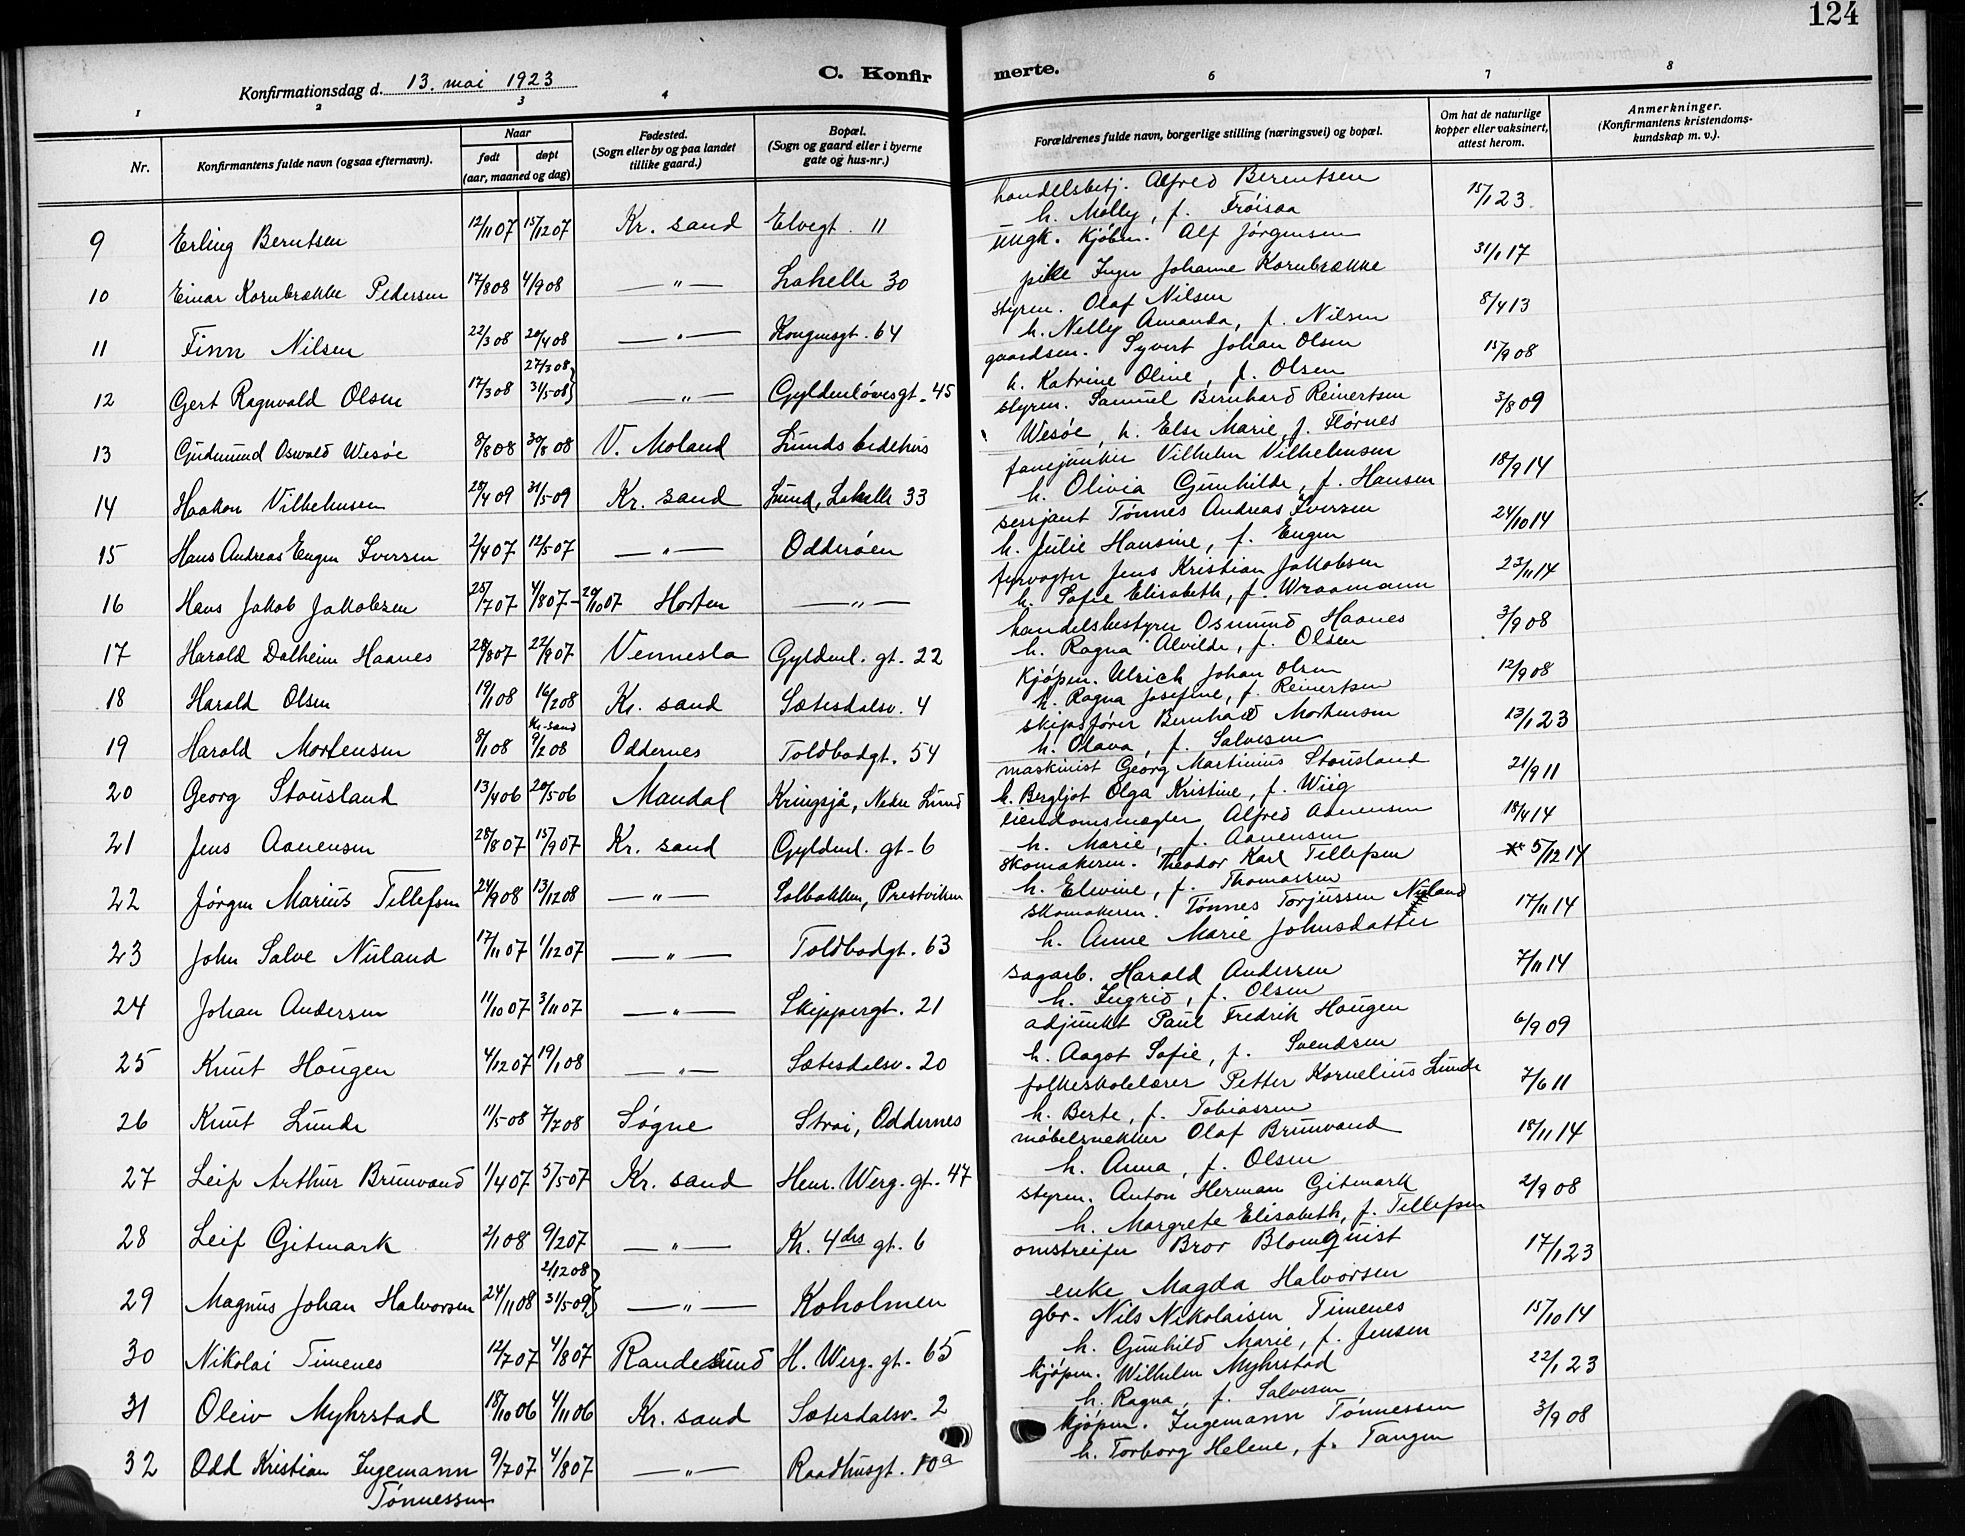 124
C. Konfir merte.
Konfirmationsdag d. 13. mai 1923
1 2 3 4 6 7 8
Nr.
Konfirmantens fulde navn (ogsaa efternavn).
Naar
født døpt
(aar, maaned og dag)
Fødested.
(Sogn eller by og paa landet
tillike gaard.)
Bopæl.
(Sogn og gaard eller i byerne
gate og hus-nr.)
Forældrenes fulde navn, borgerlige stilling (næringsvei) og bopæl.
Om hat de naturlige
kopper eller vaksinert,
attest herom.
Anmerkninger.
(Konfirmantens kristendoms-
kundskap m. v.).
9 Erling Berntsen 12/11 07 15/12 07 Kr. sand Elvegt. 11
handelsbetj. Alfred Berentsen 15/1 23.
h. Molly, f. Frøisaa
10 Einar Kornbrække Pedersen 17/8 08 4/9 08 —„— Lahelle 30
ungk. kjøbm. Alf Jørgensen 31/1 17
pike Inger Johanne Kornbrække
11 Finn Nilsen 22/3 08 20/4 08 —„— Kongensgt. 64
styrm. Olaf Nilsen 8/4 13
h. Nelly Amanda, f. Nilsen
12 Gert Ragnvald Olsen 17/3 08 27/3 08} 31/5 08} —„— Gyldenløvesgt. 45
gaardsm. Syvert Johan Olsen 15/9 08
h. Katrine Oline, f. Olsen
13 Gudmund Oswald Wesøe 8/8 08 30/8 08 V. Moland Lunds bedehus
styrm. Samuel Bernhard Reinertsen 3/8 09
Wesøe, h. Else Marie, f. Flørnes
14 Haakon Vilhelmsen 28/4 09 31/5 09 Kr. sand Lund, Lahelle 33
fanejunker Vilhelm Vilhelmsen 18/9 14
h. Olivia Gunhilde, f. Hansen
15 Hans Andreas Eugen Iversen 2/4 07 12/5 07 —„— Odderøen
serjant Tønnes Andreas Iversen 24/10 14
h. Julie Hansine, f. Eugen
16 Hans Jakob Jakobsen 25/7 07 4/8 07 – 20/10 07 Horten —„—
fyrvogter Jens Kristian Jakobsen 23/11 14
h. Sofie Elisabeth, f. Wraamann
17 Harald Dalheim Haanes 28/8 07 22/9 07 Vennesla Gyldenl. gt. 22
handelsbestyrer Osmund Haanes 3/9 08
h. Ragna Alvilde, f. Olsen
18 Harald Olsen 19/1 08 16/2 08 Kr. sand Sætesdalsv. 4
Kjøpm. Ulrich Johan Olsen 12/9 08
h. Ragna Josefine, f. Reinertsen
19 Harald Mortensen 8/1 08 Kr. sand 9/2 08 Oddernes Toldbodgt. 54
skipsfører Bernhard Mortensen 13/1 23
h. Olava, f. Salvesen
20 Georg Stousland 13/4 06 20/5 06 Mandal Kringsjå, Nedre Lund
maskinist Georg Martinius Stousland 21/9 11
h. Bergljot Olga Kristine, f. Wiig
21 Jens Aanensen 28/8 07 15/9 07 Kr. sand Gyldenl. gt. 6
eiendomsmegler Alfred Aanensen 18/4 14
h. Marie, f. Aanensen
22 Jørgen Marius Tellefsen 24/9 08 13/12 08 —„— Solbakken, Prestviken
skomakerm. Theodor Karl Tellefsen 5/12 14
h. Elevine, f. Thomassen
23 John Salve Nuland 17/11 07 1/12 07 —„— Toldbodgt. 63
skomakerm. Tønnes Torjussen Nuland 17/11 14
h. Anne Marie Johnsdatter
24 Johan Andersen 11/10 07 3/11 07 —„— Skippergt. 21
sagarb. Harald Andersen 7/11 14
h. Ingrid, f. Olsen
25 Knut Hougen 4/12 07 19/1 08 —„— Sætesdalsv. 20
adjunkt Paul Fredrik Hougen 6/9 09
h. Aagot Sofie, f. Svendsen
26 Knut Lunde 11/5 08 7/7 08 Søgne Strai, Oddernes
folkeskolelærer Petter Kornelius Lunde 7/6 11
h. Berte, f. Tobiassen
27 Leif Arthur Brunvand 1/4 07 5/5 07 Kr. sand Henr. Werg. gt. 47
møbelsnekker Olaf Brunvand 18/11 14
h. Anna, f. Olsen
28 Leif Gitmark 2/1 08 9/2 07 —„— Kr. 4des gt. 6
styrm. Anton Herman Gitmark 2/9 08
h. Margrete Elisabeth, f. Tellefsen
29 Magnus Johan Halvorsen 24/11 08 2/12 08} 31/5 09} —„— Koholmen
omstreifer Bror Blomquist 17/1 23
enke Magda Halvorsen
30 Nikolai Timenes 12/7 07 4/8 07 Randesund H. Werg. gt. 65
gbr. Nils Nikolaisen Timenes 15/10 14
h. Gunhild Marie, f. Jensen
31 Oleiv Myhrstad 18/10 06 4/11 06 Kr. sand Sætesdalsv. 2
kjøpm. Wilhelm Myhrstad 22/1 23
h. Ragna, f. Salvesen
32 Odd Kristian Ingemann Tønnessen 9/7 07 4/8 07 —„— Raadhusgt. 10a
kjøpm. Ingemann Tønnessen 3/9 08
h. Torborg Helene, f. Tangen